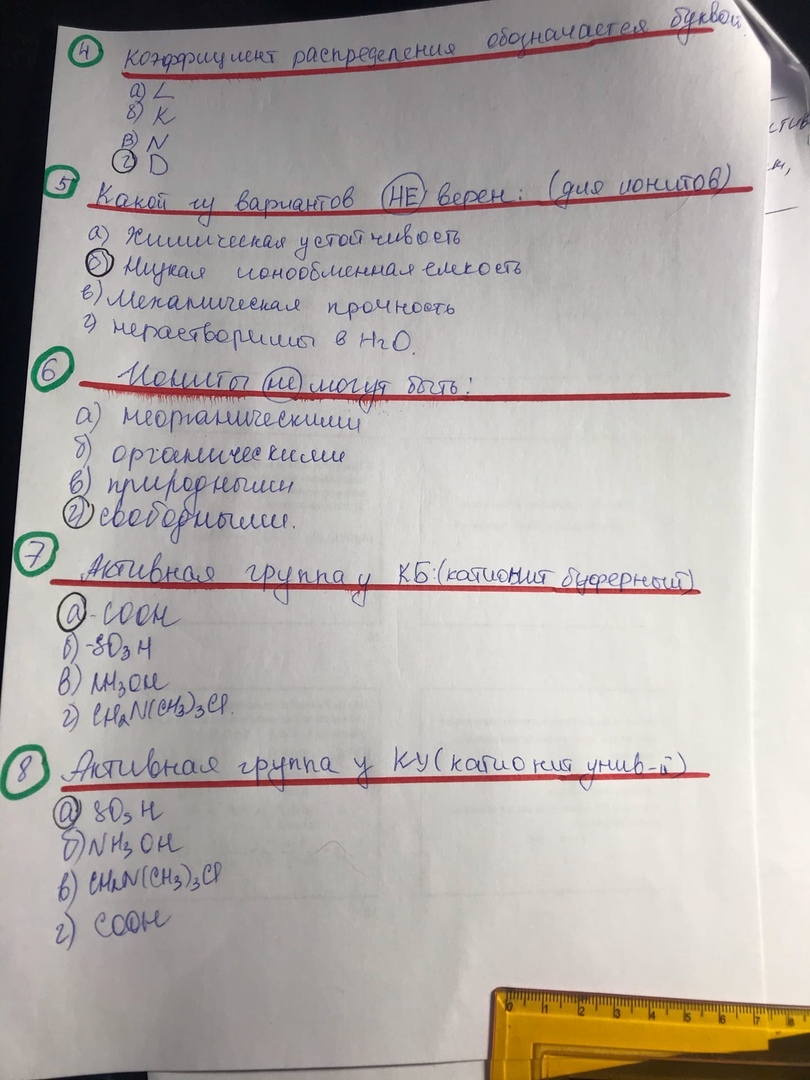 4 Коэффициент распределения обозначается буквой
а) L
б) K
в) N
г) D
5 Какой из вариантов НЕ верен: (для ионитов)
а) Химическая устойчивость
б) Низкая ионообменная емкость
в) Механическая прочность
г) нерастворимы в H2O.
6 Иониты не могут быть:
а) неорганическими
б) органическими
в) природными
г) свободными.
7 Активная группа у КБ: (катионит буферный)
а -COOH
б) -SO3H
в) NH3OH
г) CH2N(CH3)3Cl.
8 Активная группа у КУ (катионит унив-й)
а) SO3H
б) NH3OH
в) CH2N(CH3)3Cl
г) COOH
0 1 2 3 4 5 6 7 8